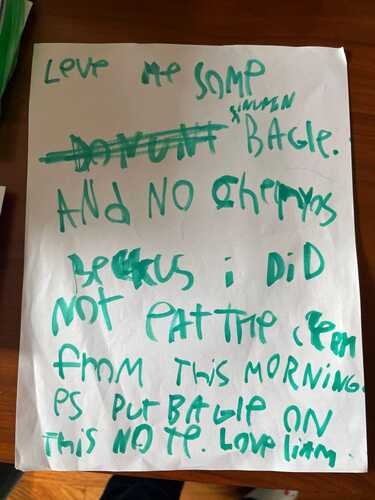 LEVE ME SOME
SINUMEN
DONUNT BAGLE.
ANd NO
BECKUS i DiD
NOT EAT THE
fROM THiS MORNING.
PS PUT BAGlE ON
THiS NOTE. LOVE liAM.